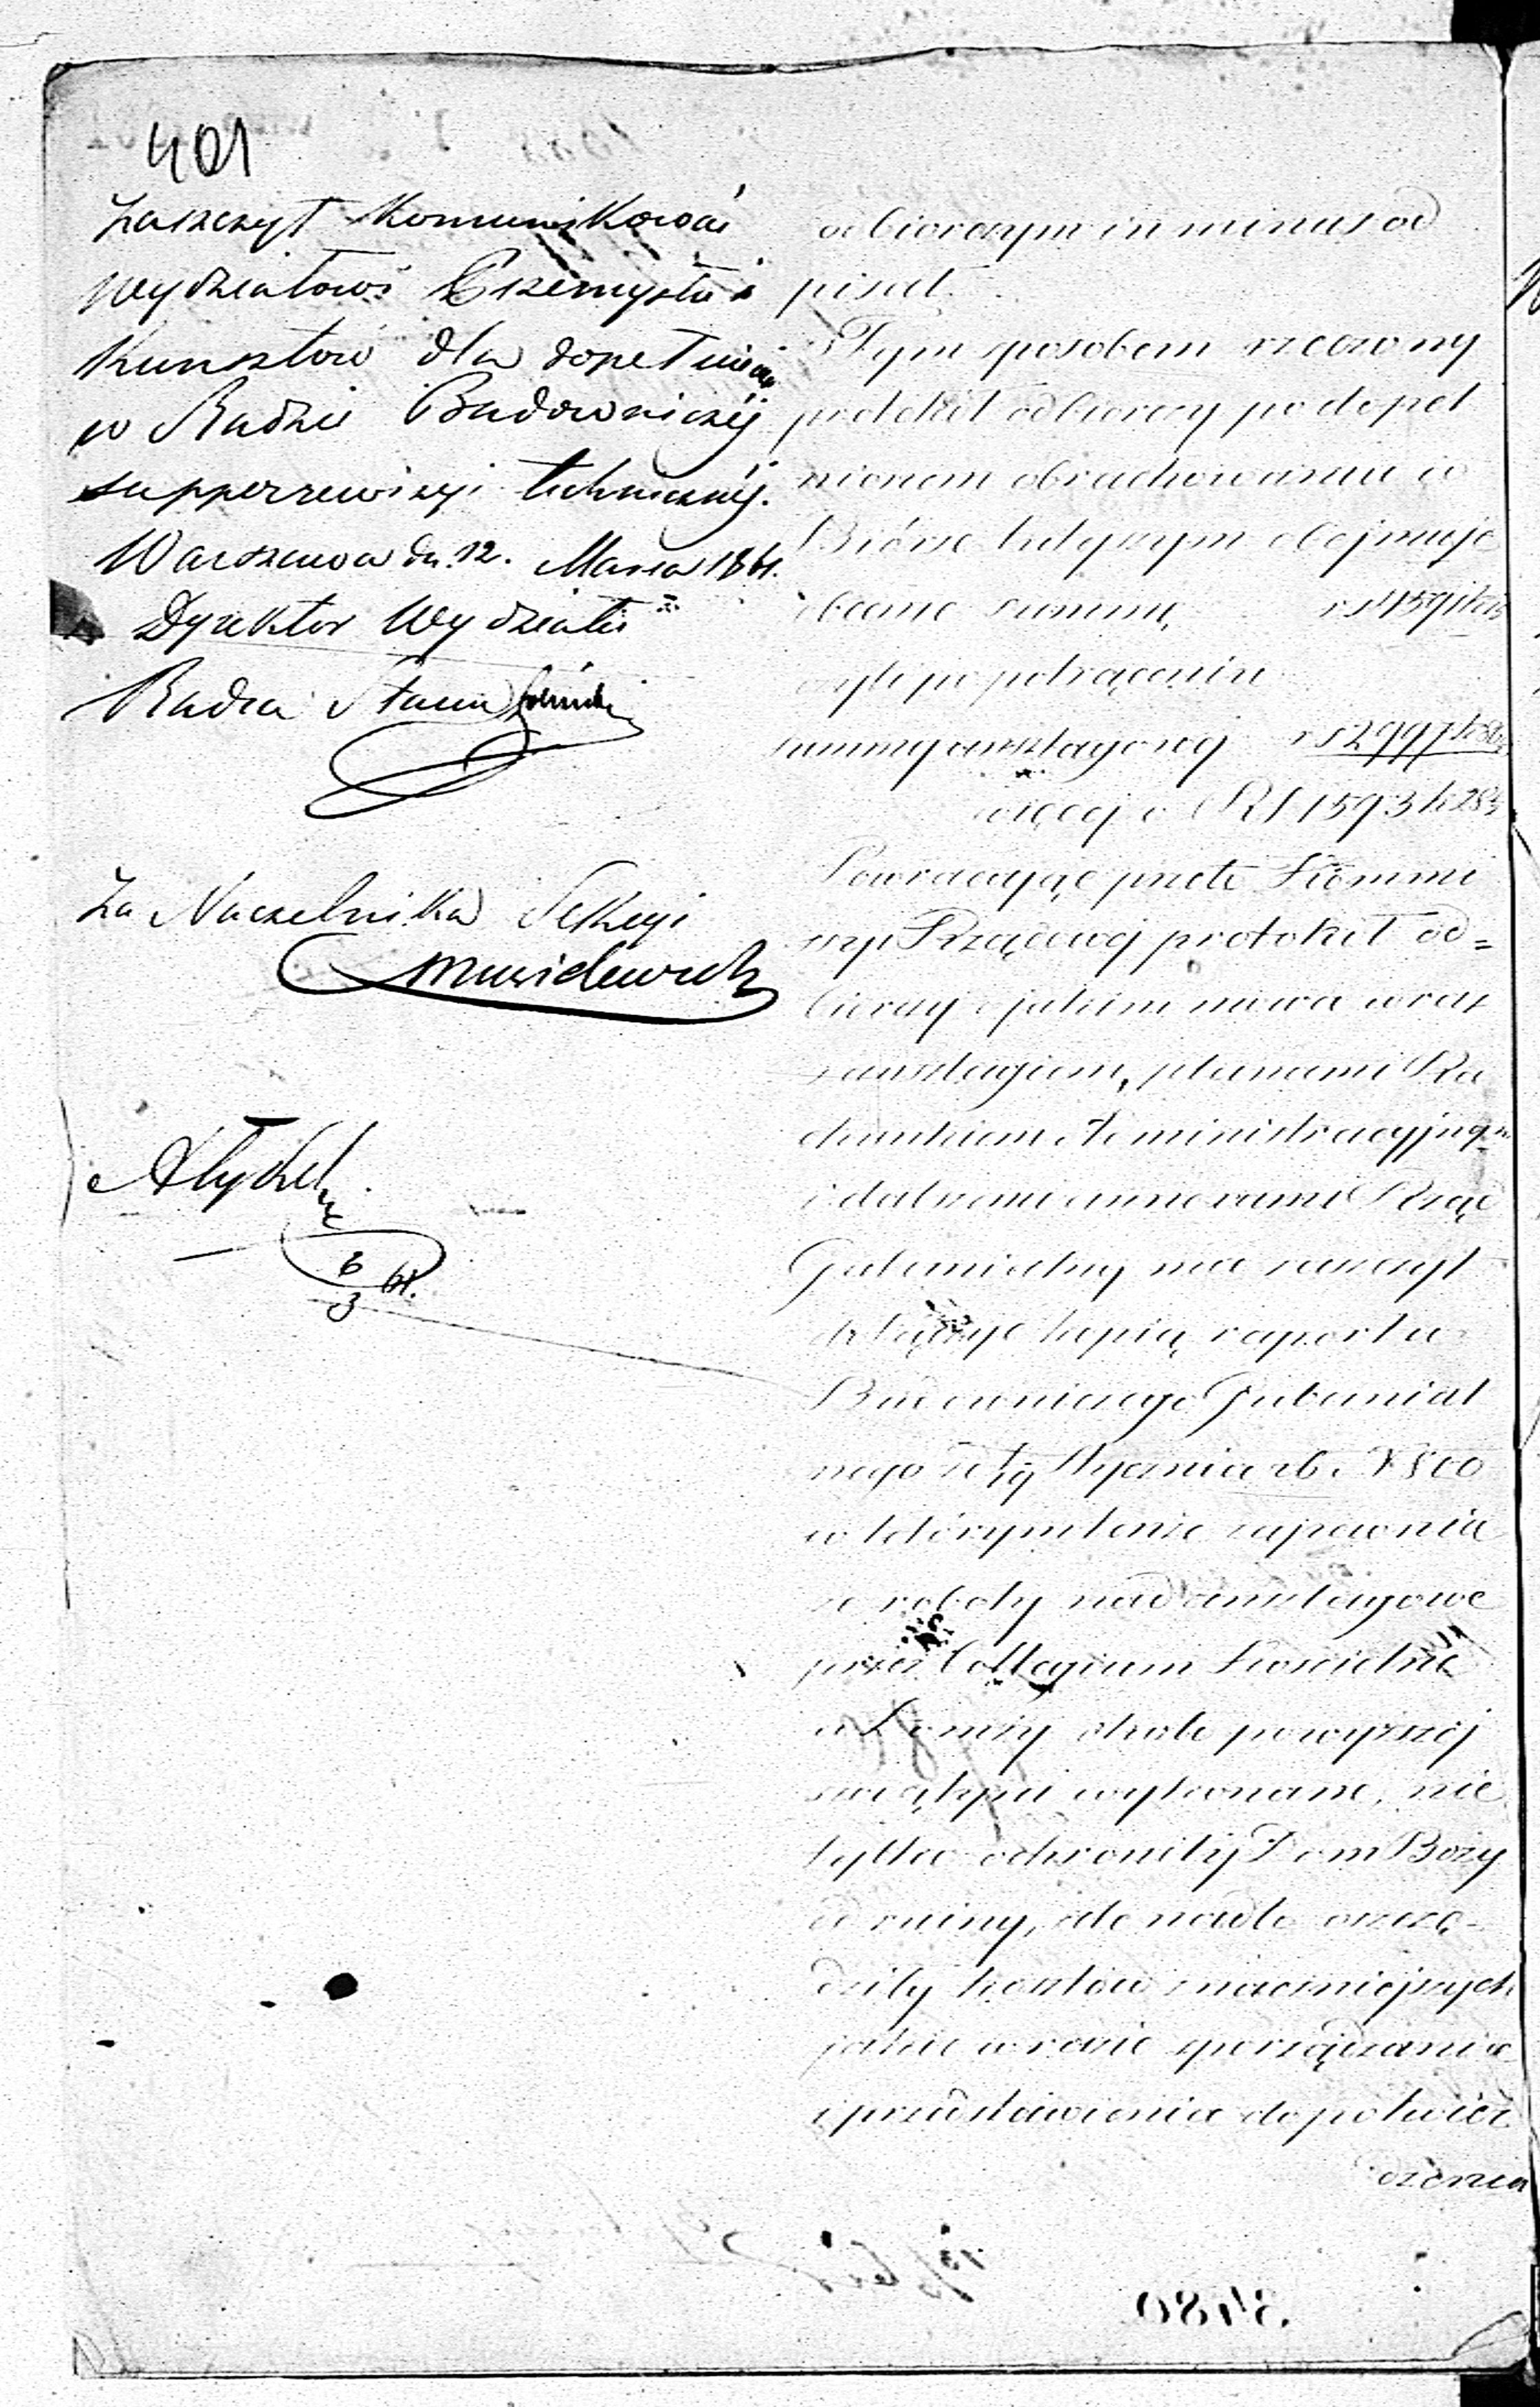 401
zaszczyt Kommunikować
Wydziałowi Przemysłu i
Kunsztów dla dopełnienia
w Radzie Budowniczéj
supperrewizyi technicznéj.
Warszawa dn. 12. Marca 1861.
Dyrektor Wydziału
Radca Stanu
Za Naczelnika Sekcyi
6
3 61.
odbiorczym in minus od
pisał.
Tym sposobem rzeczony
protokół odbiorczy po dopeł
nionem obrachowaniu w
Biórze tutejszym obejmuje
obecnie summę rs 4591 k
czyli po potrąceniu
summy anszlagowej rs 2997 k
więcej o RS 1593 k 28½
Powracając przeto Kommi
ssyi Rządowej protokół od=
biorczy o jakim mowa wraz
z anszlagiem, planami Ra
chunkiem Administracyjnym
i dalszemi annexami Rząd
Gubernialny ma zaszczyt
dołączyć kopią raportu
Budowniczego Gubernial
nego z 7/19 Stycznia rb. N 800
w którym tenże zapewnia
że roboty nad anszlagowe
przez Collegium Kościelne
w Łomży około powyższej
świątyni wykonane, nie
tylko ochroniły Dom Boży
od ruiny, ale nadto oszczę-
dziły kosztów znaczniejszych
jakie w razie sporządzania
i przedstawienia do potwier
dzenia
3480